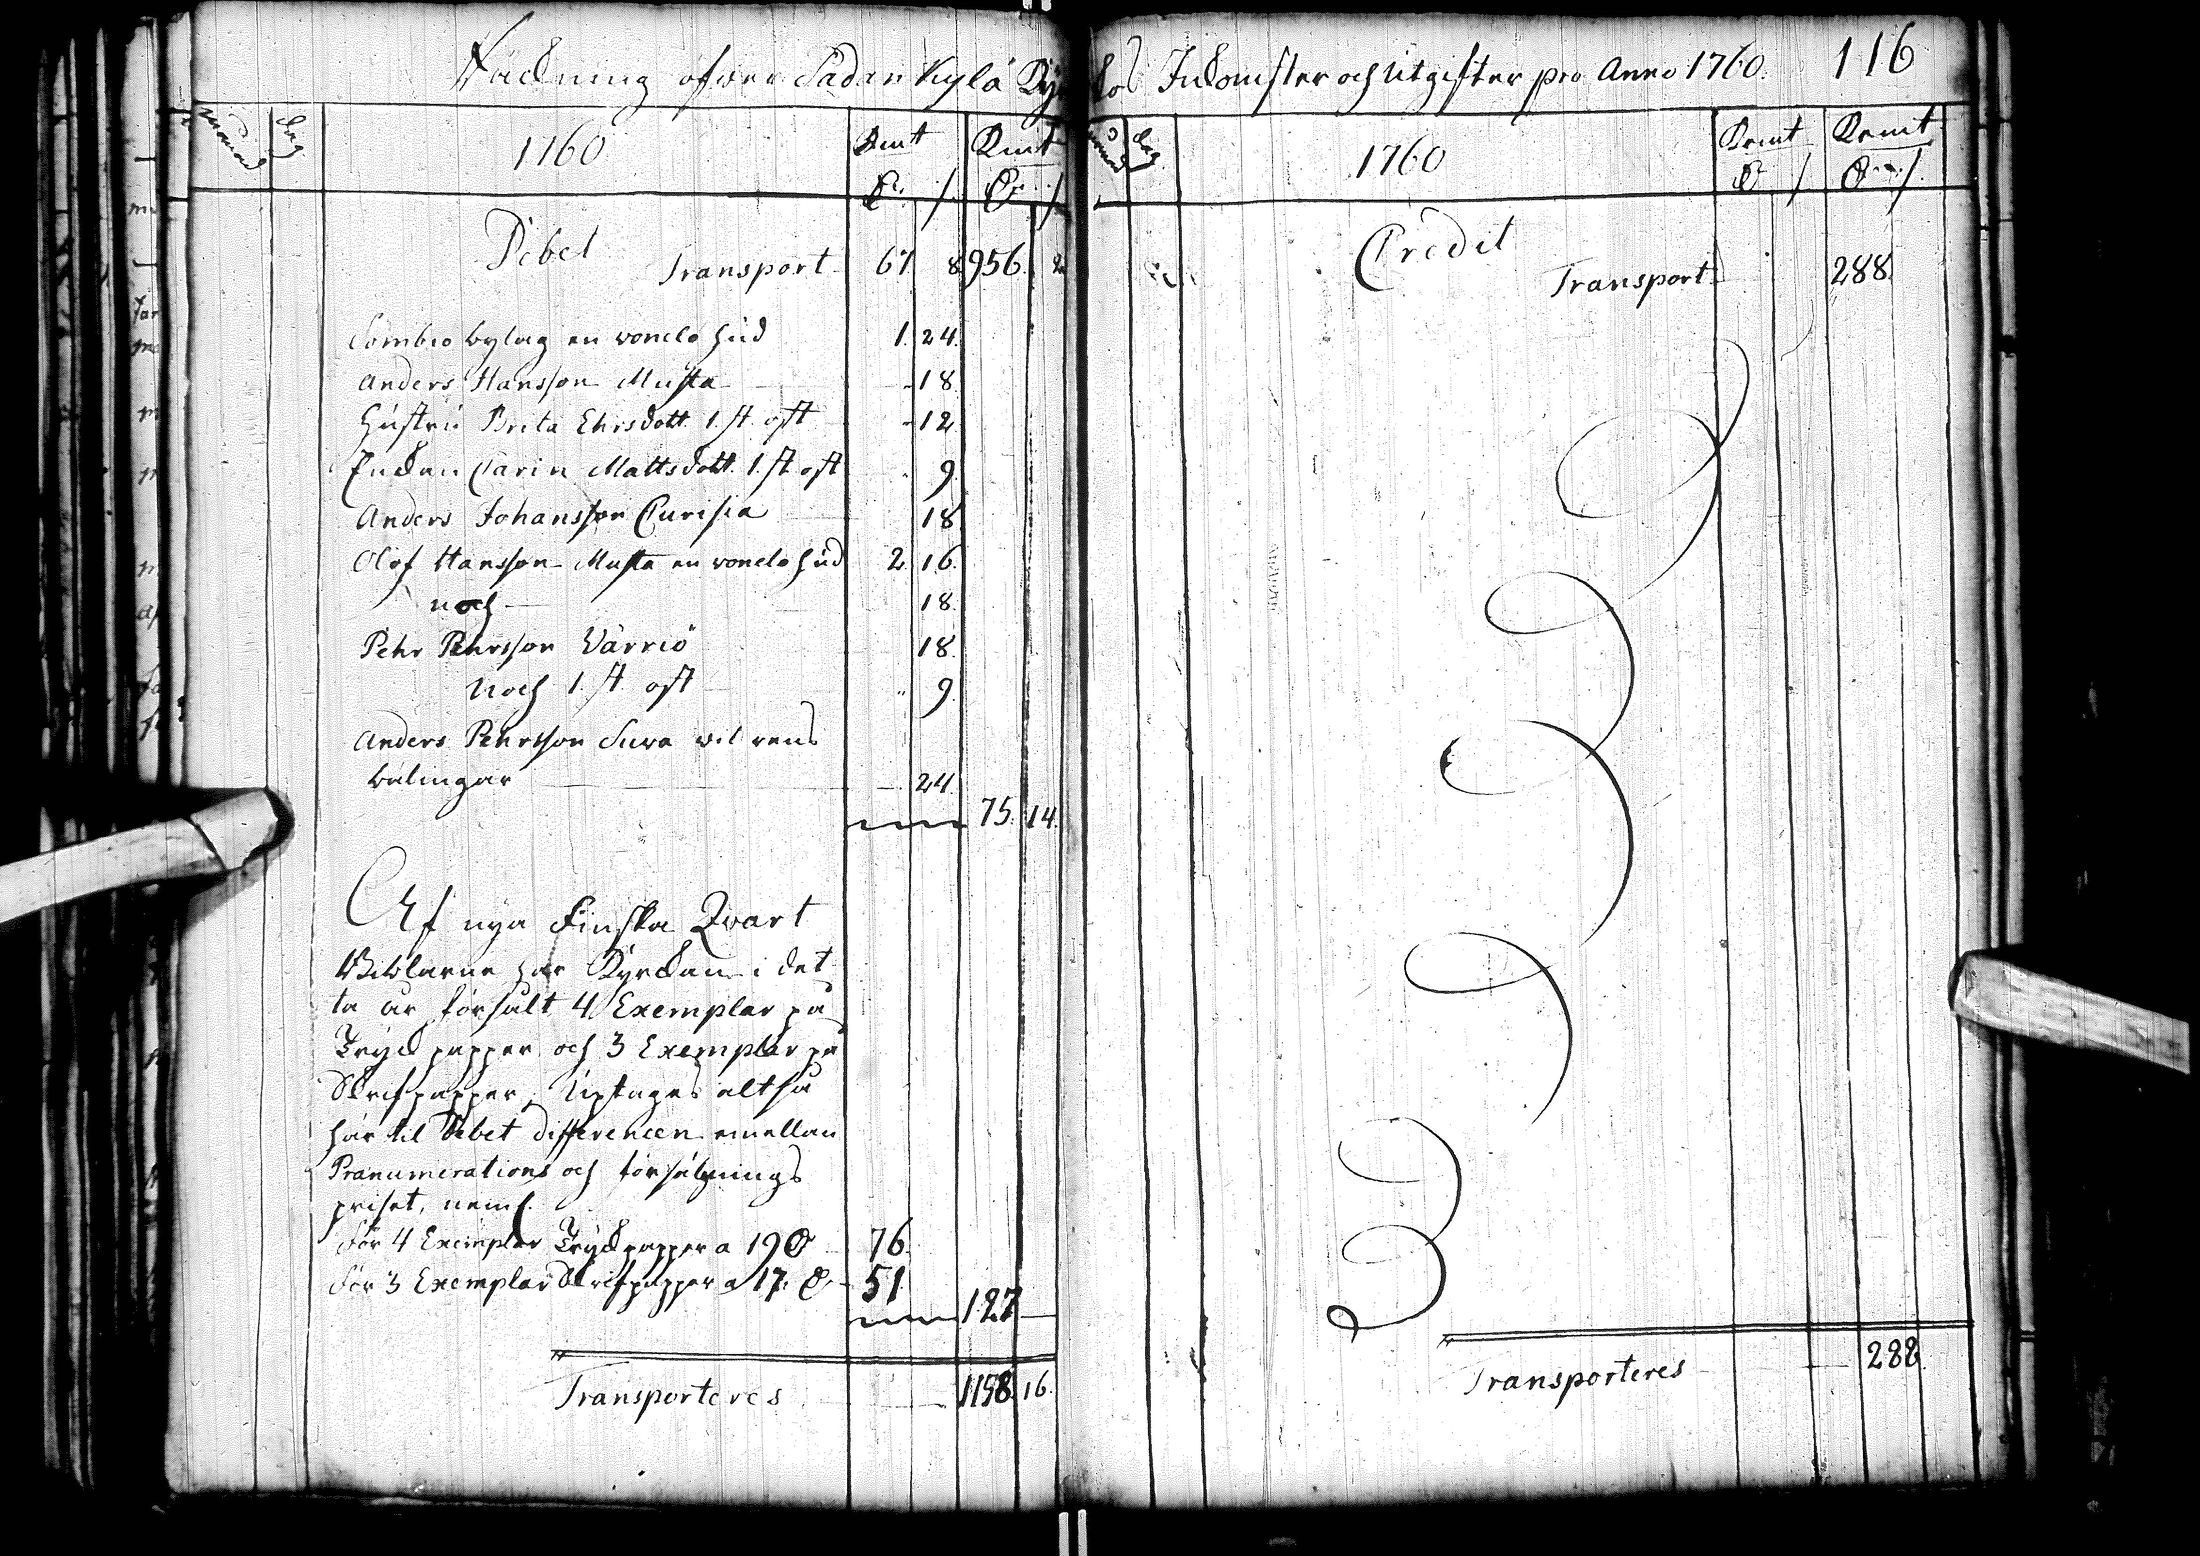 Räckning öfver Sodankylä Kyrckos Inkomster och Utgifter pro Anno 1760. 116
Månad Dag 1760 Kmt Kmt
Debet
Transport 67 8 956 2
Sombio bylag en vonclo hud 1. 24.
Anders Hansson Musta - 18
Hustru Brita Ehrsdott. 1. st. ost - 12
Enckan Carin Mattsdott. 1. st. ost 9
Anders Johansson Curisia 18
Olof Hansson Musta en vonclo hud 2 16.
noch 18.
Pehr Pehrsson Värriö 18.
noch 1. st. ost 9
Anders Pehrsson Suva vil rens
bälingar 24
75. 14.
Af nya Finska Qvart
Biblarne har Kyrckan i det
ta år försålt 4 Exemplar på
Tryck papper och 3 Exemplar på
Skrifpapper, Uptages altså
här til Debet differencen emellan
Pranumerations och försälgnings
priset, neml.
För 4 Exemplar Tryckpapper a 19 D 76
För 3 Exemplar Skrifpapper a 17. D. 51
127
Transporteres 1158. 16.
Månad Dag 1760 Kmt Kmt
Credit
Transport 288.
Transporteres 288